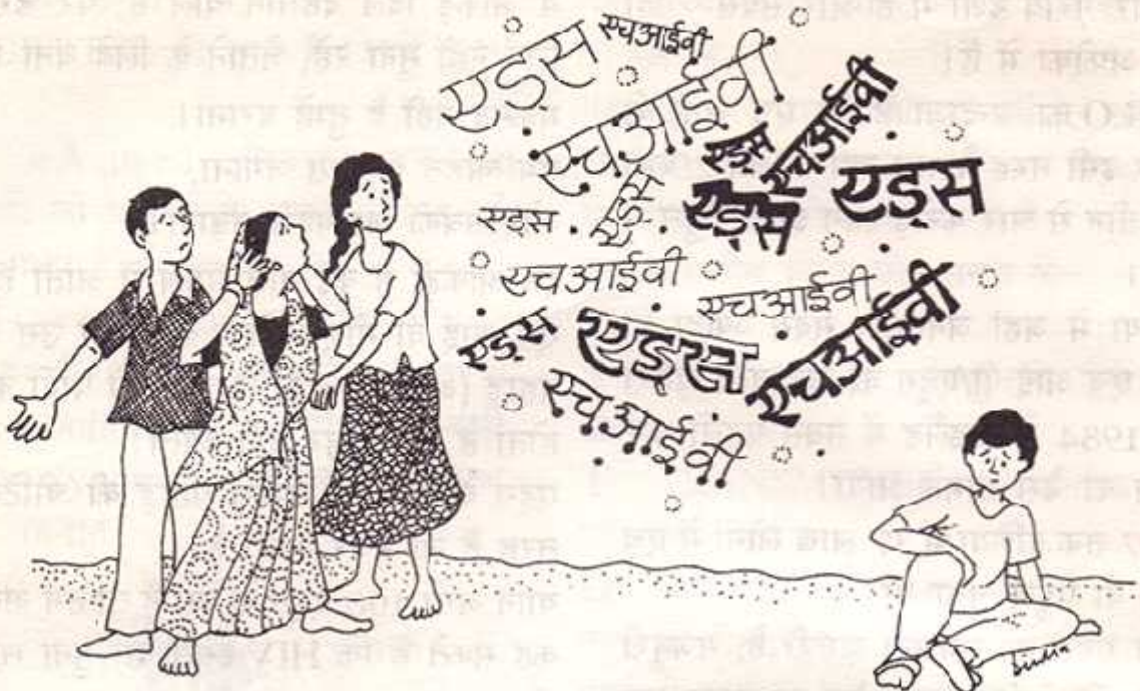 एड्स
एचआईवी
एचआईवी
एड्स
एचआईवी
एड्स
एड्स
एड्स
एड्स
एचआईवी
एचआईवी
एड्स
एड्स
एचआईवी
एचआईवी